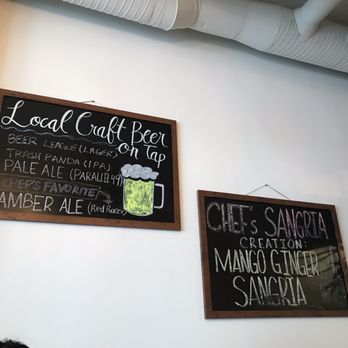 Local Craft Beer
on Tap
BEER LEAGUE (LAGER)
TRASH PANDA (IPA)
PALE ALE (PARALLEL 49)
CHEF'S FAVORITE
AMBER ALE (Red Racer)
CHEF'S SANGRIA
CREATION:
MANGO GINGER
SANGRIA